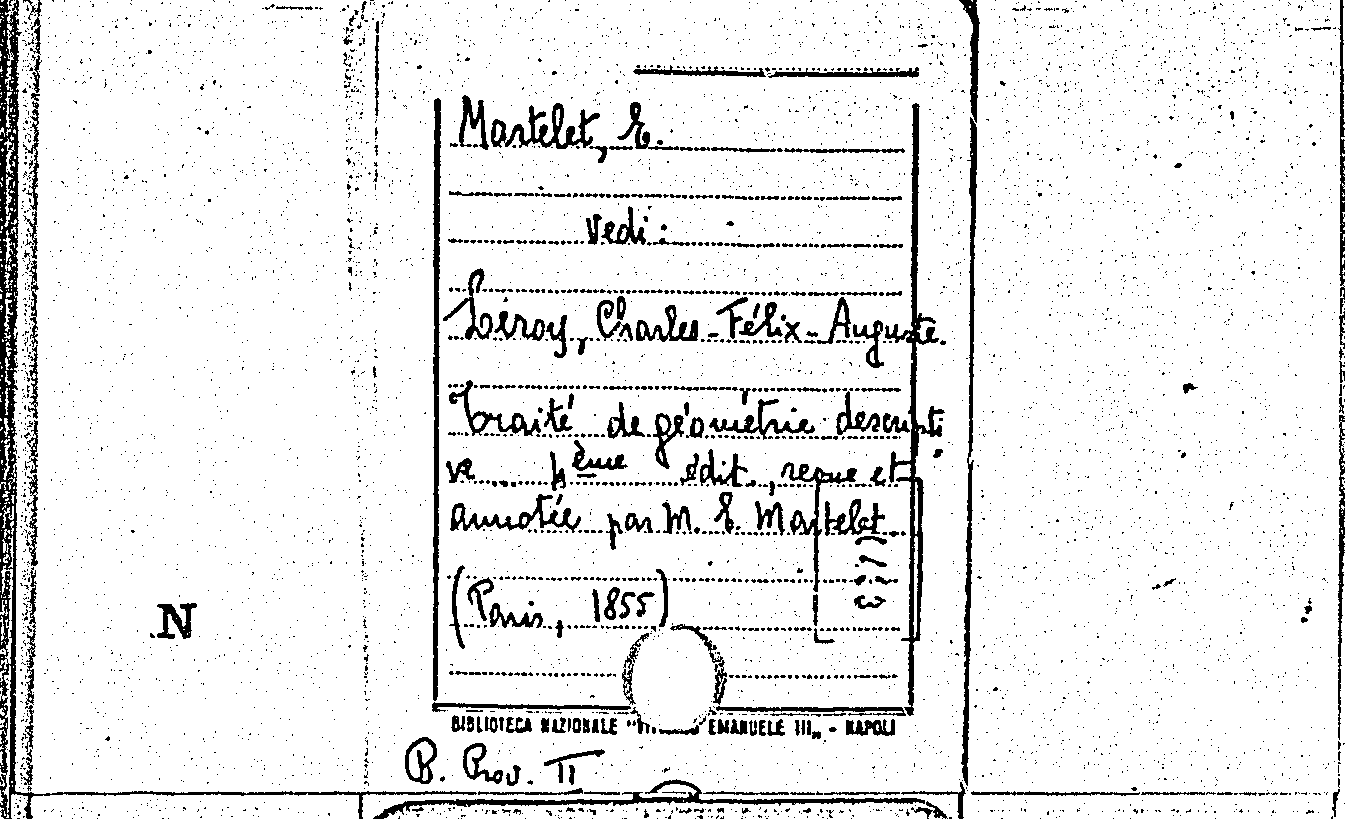 Martelet, E.
Vedi:
Léroy, Charles-Félix-Auguste.
Traité de géométrie descripti
ve ... 4ème édit., revue et
annotée par M. E. Martelet.
(Paris, 1855)
N
BIBLIOTECA NAZIONALE " EMANUELE III„ - NAPOLI
B. Prov. II